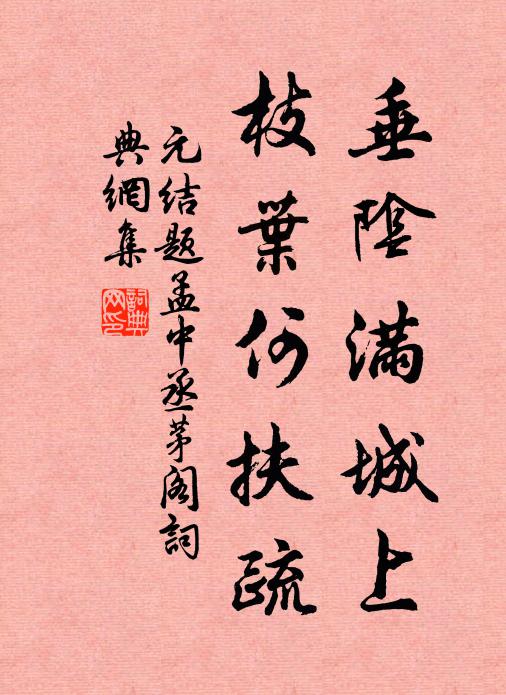 垂陰滿城上
枝葉何扶疏
元结题孟中丞茅阁詞
典網集
詞典網印